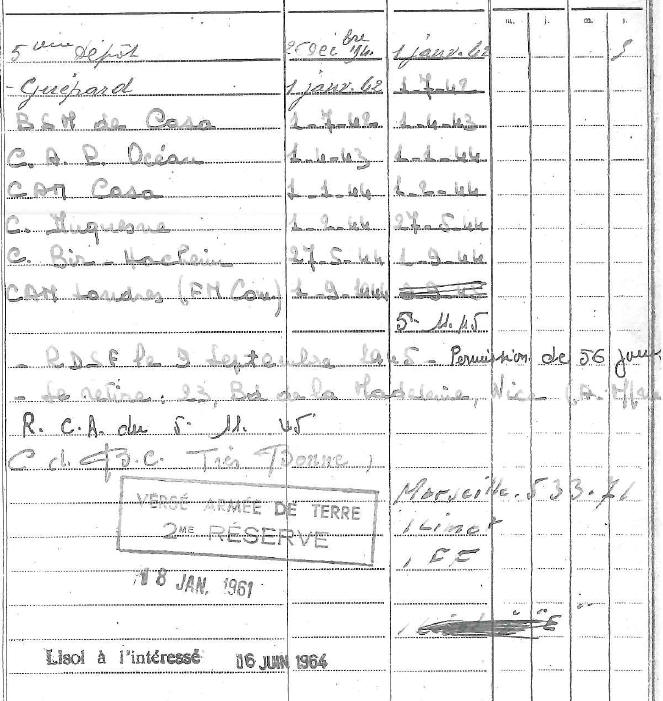 m. j. m. j.
5ème Dépôt 1 janv. 42
- Guépard 1 janv. 42 1-7-42
B S M de Casa 1-7-42 1-4-43
C. A. P. Océan 1-4-43 1-1-44
CAM Casa 1-1-44 1-2-44
C. Duquesne 1-2-44 27-5-44
C. Bir-Hacheim 27-5-44 1-9-44
CAM Londres (FM Com) 1-9-1944
5-11-45
- le 9 Septembre 1945 - Permission de 56 jours
- Se retire : 23, Bd de la Madeleine, Nice
R. C. A. du 5. 11. 45
C d. B. C. Très Bonne
Marseille. 533-71
VERSÉ ARMÉE DE TERRE
2ME RÉSERVE
18 JAN. 1961
Lisol à l'intéressé 16 JUIN 1964